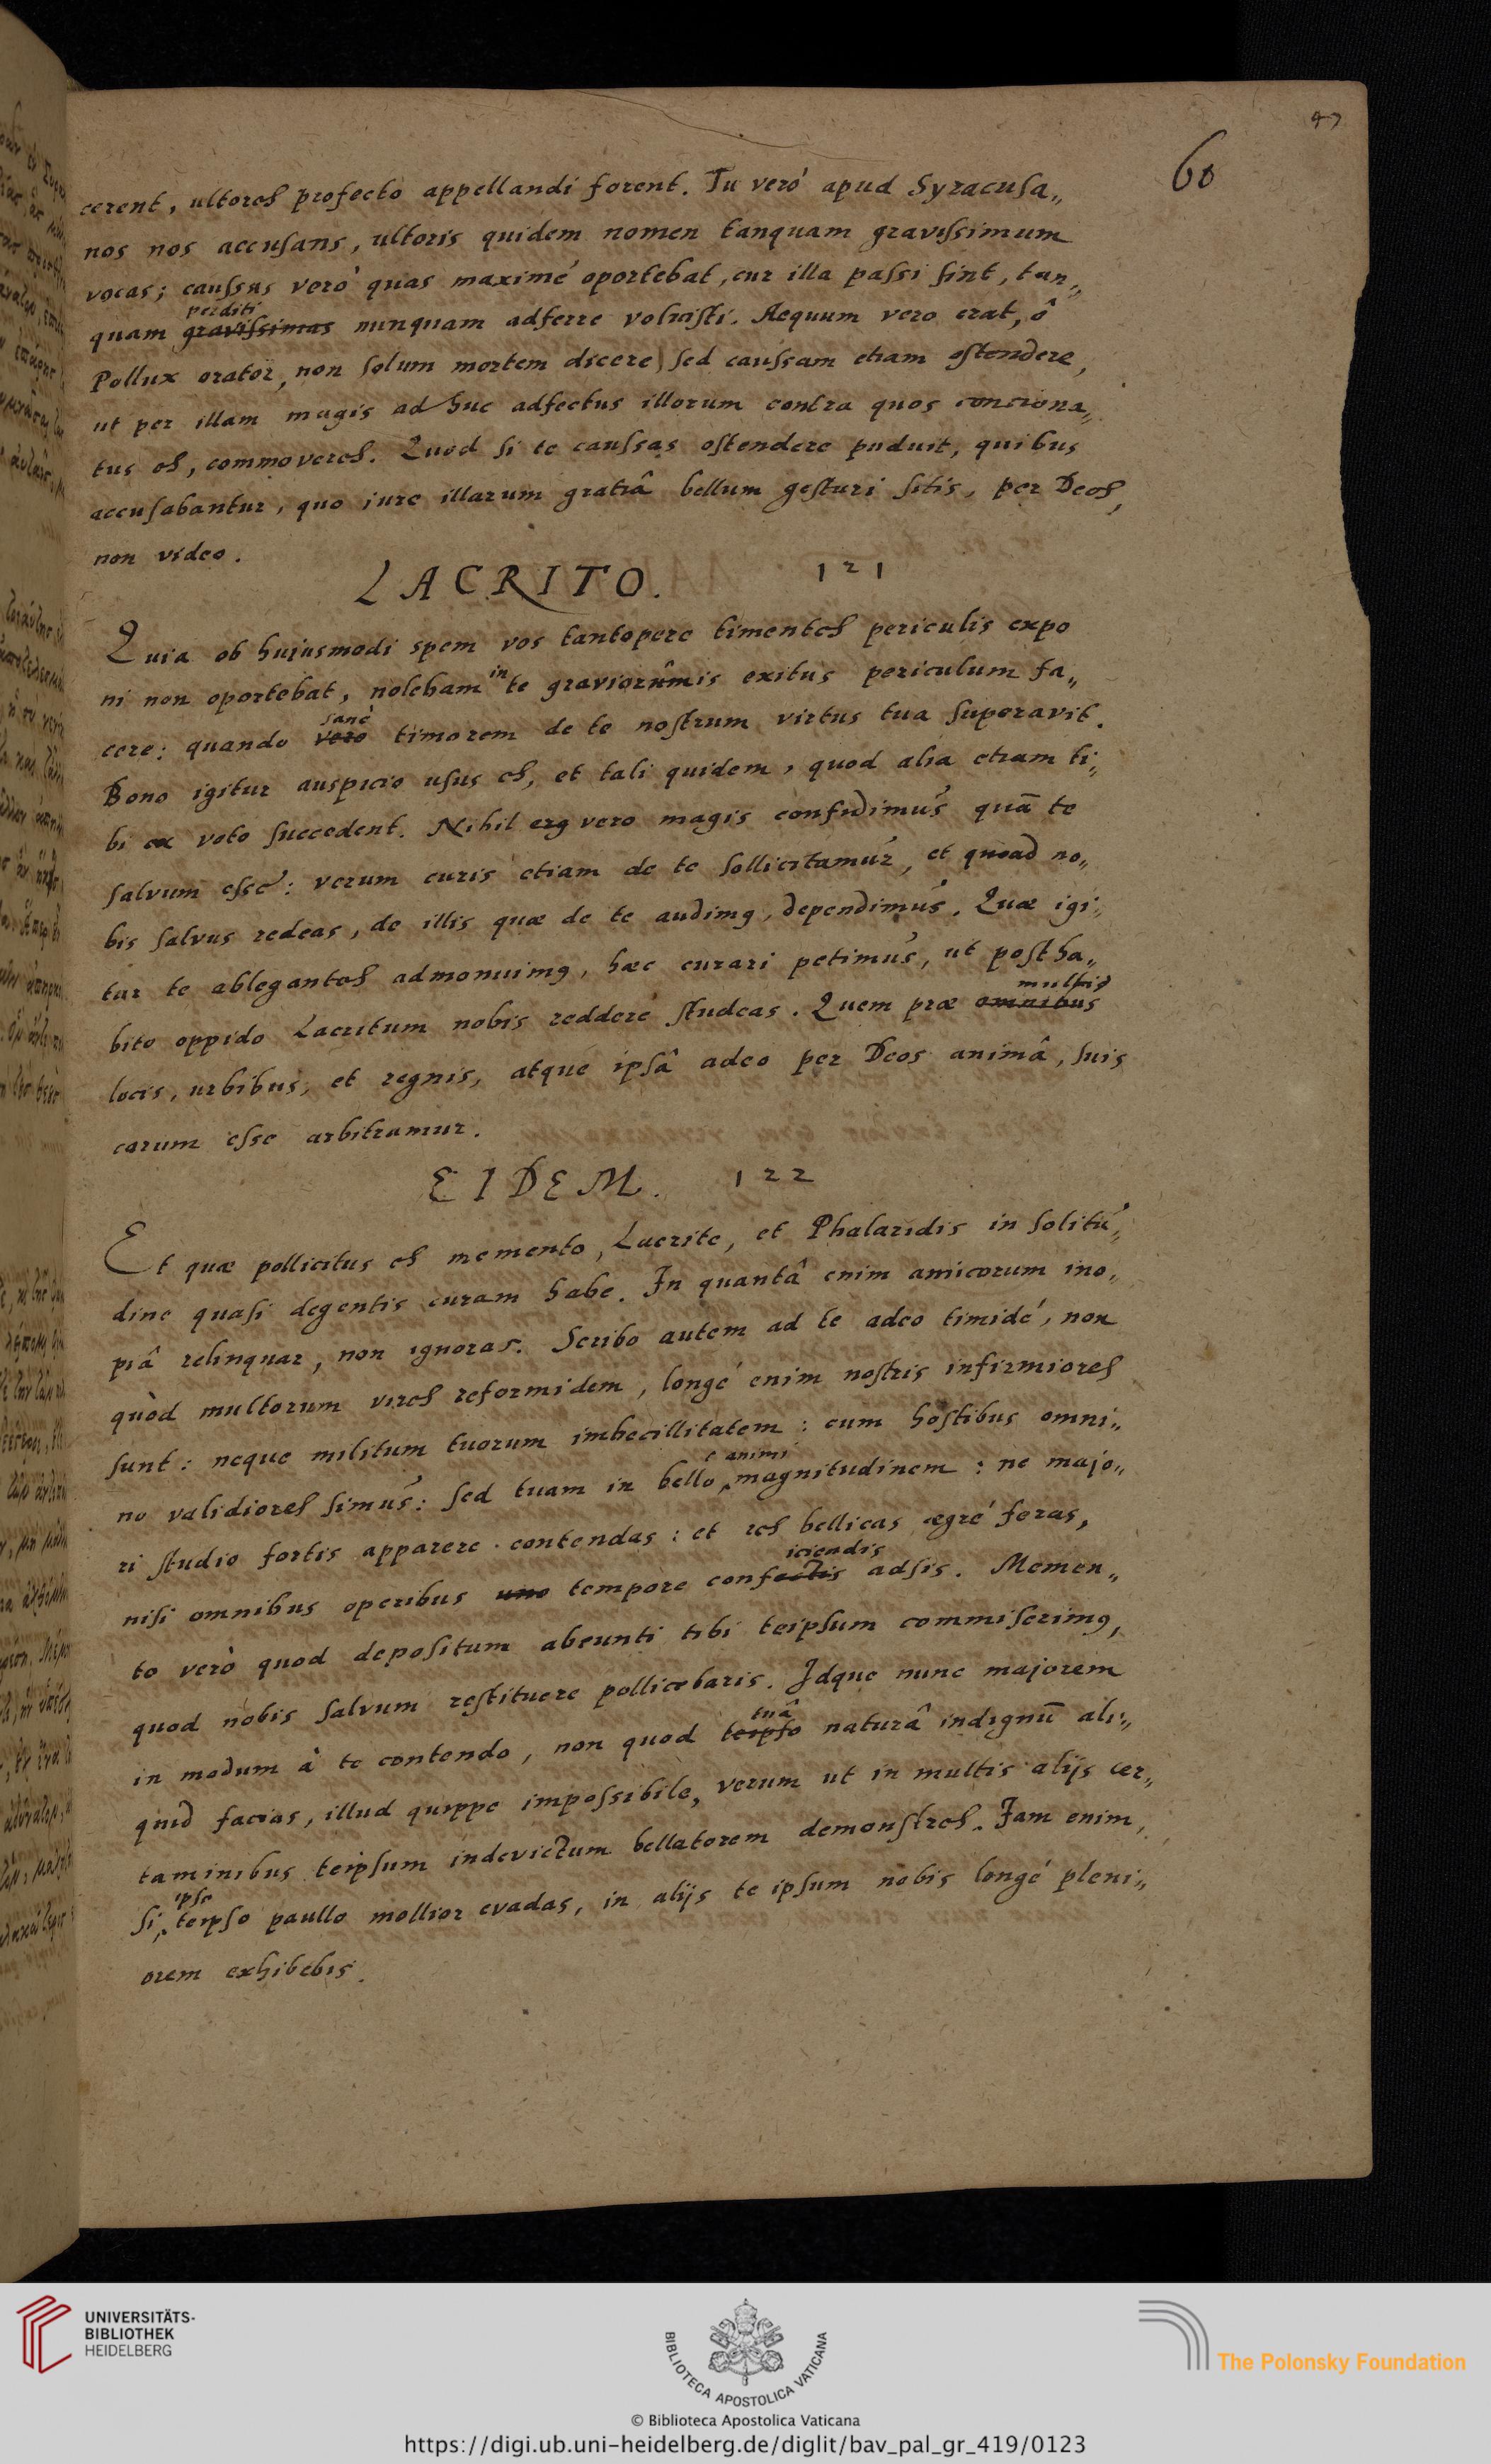 47
60
cerent, ultores profecto appellandi forent. Tu veró apud Syracusa„
nos nos accusans, ultoris quidem nomen tanquam gravissimum
vocas; caussas verò quas maximé oportebat, cur illa passi sint, tan„
perditi
quam gravissimas nunquam adferre voluisti. Aequum vero erat, ô
Pollux orator, non solum mortem dicere) sed caussam etiam ostendere,
ut per illam magis ad huc adfectus illorum contra quos conciona„
tus es, commoveres. Quod si te caussas ostendere puduit, quibus
accusabantur, quo iure illarum gratiâ bellum gesturi sitis, per Deos,
non video.
LACRITO. 121
Quia ob hujusmodi spem vos tantopere timentes periculis expo
ni non oportebat, nolebam in te exitus periculum fa„
sanè
cere: quando vero timorem de te nostrum virtus tua superavit.
Bono igitur auspicio usus es, et tali quidem, quod alia etiam ti„
bi ex voto succedent. Nihil erg vero magis confidimus quā te
salvum esse: verum curis etiam de te sollicitamur, et quoad no„
bis salvus redeas, de illis quæ de te audimꝰ, dependimus. Quæ igi„
tur te ablegantes admonuimꝰ, hæc curari petimus, ut post ha„
multis
bito oppido Lacritum nobis reddere studeas. Quem præ omnibus
locis, urbibus, et regnis, atque ipsâ adeo per Deos animâ, suis
carum esse arbitramur.
EIDEM. 122
Et quæ pollicitus es memento, Lacrite, et Phalaridis in solitu„
dine quasi degentis curam habe. In quantâ enim amicorum ino„
piâ relinquar, non ignoras. Scribo autem ad te adeo timidé, non
quòd multorum vires reformidem, longé enim nostris infirmiores
sunt: neque militum tuorum imbecillitatem: cum hostibus omni„
animi
no validiores simus: sed tuam in bello magnitudinem: ne majo„
ri studio fortis apparere contendas: et res bellicas ægré feras,
iciendis
nisi omnibus operibus uno tempore confectis adsis. Memen„
to verò quod depositum abeunti tibi teipsum commiserimꝰ,
quod nobis salvum restituere pollicebaris. Idque nunc majorem
tuâ
in modum à te contendo, non quod teipso naturâ indignū ali„
quid facias, illud quippe impossibile, verum ut in multis alijs cer„
taminibus teipsum indevictum bellatorem demonstres. Jam enim,
ipso
si teipso paullo mollior evadas, in alijs te ipsum nobis longé pleni„
orem exhibebis.
UNIVERSITÄTS-
BIBLIOTHEK
HEIDELBERG
BIBLIOTECA APOSTOLICA VATICANA
The Polonsky Foundation
© Biblioteca Apostolica Vaticana
https://digi.ub.uni-heidelberg.de/diglit/bav_pal_gr_419/0123